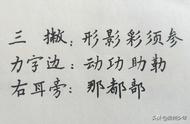 三撇：形影彩须参
力字边：动功助勒
右耳旁：那都部